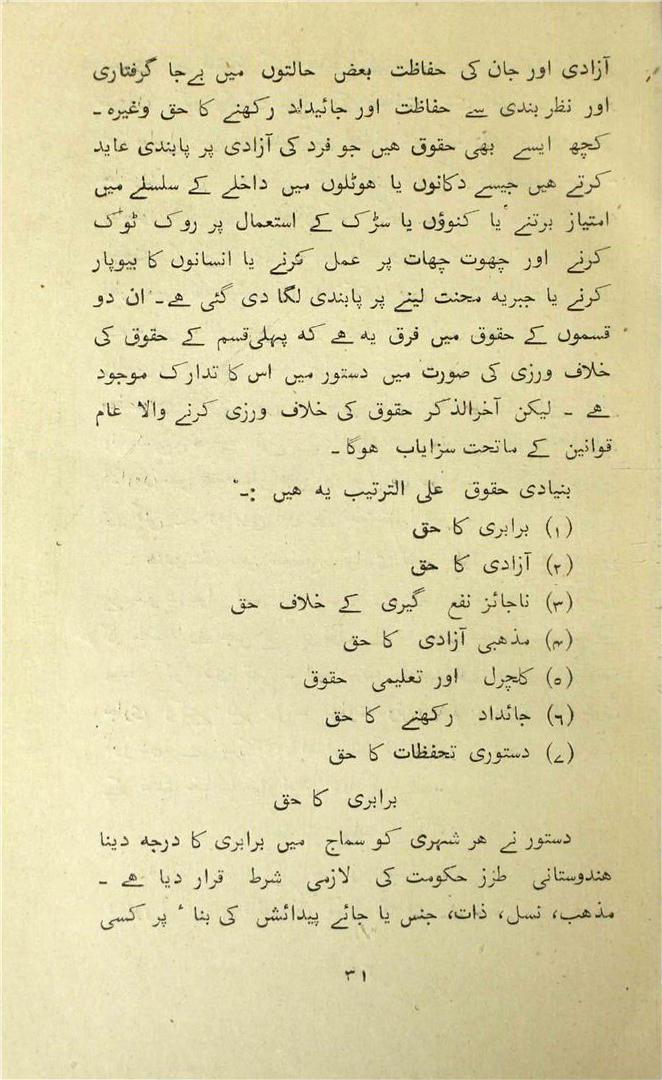 آزادی اور جان کی حفاظت بعض حالتوں میں بےجا گرفتاری
اور نظر بندی سے حفاظت اور جائیداد رکھنے کا حق وغیرہ ۔
کچھ ایسے بھی حقوق ھیں جو فرد کی آزادی پر پابندی عاید
کرتے ھیں جیسے دکانوں یا ھوٹلوں میں داخلے کے سلسلے میں
امتیاز برتنے یا کنوؤں یا سڑک کے استعمال پر روک ٹوک
کرنے اور چھوت چھات پر عمل کرنے یا انسانوں کا بیوپار
کرنے یا جبریہ محنت لینے پر پابندی لگا دی گئی ھے ۔ ان دو
قسموں کے حقوق میں فرق یہ ھے کہ پہلی قسم کے حقوق کی
خلاف ورزی کی صورت میں دستور میں اس کا تدارک موجود
ھے ۔ لیکن آخرالذکر حقوق کی خلاف ورزی کرنے والا عام
قوانین کے ماتحت سزایاب ھوگا ۔
بنیادی حقوق علی الترتیب یہ ھیں :۔
(۱) برابری کا حق
(۲) آزادی کا حق
(۳) ناجائز نفع گیری کے خلاف حق
(۴) مذھبی آزادی کا حق
(۵) کلچرل اور تعلیمی حقوق
(۶) جائداد رکھنے کا حق
(۷) دستوری تحفظات کا حق
برابری کا حق
دستور نے ھر شہری کو سماج میں برابری کا درجہ دینا
ھندوستانی طرز حکومت کی لازمی شرط قرار دیا ھے ۔
مذھب، نسل، ذات، جنس یا جائے پیدائش کی بناء پر کسی
۳۱